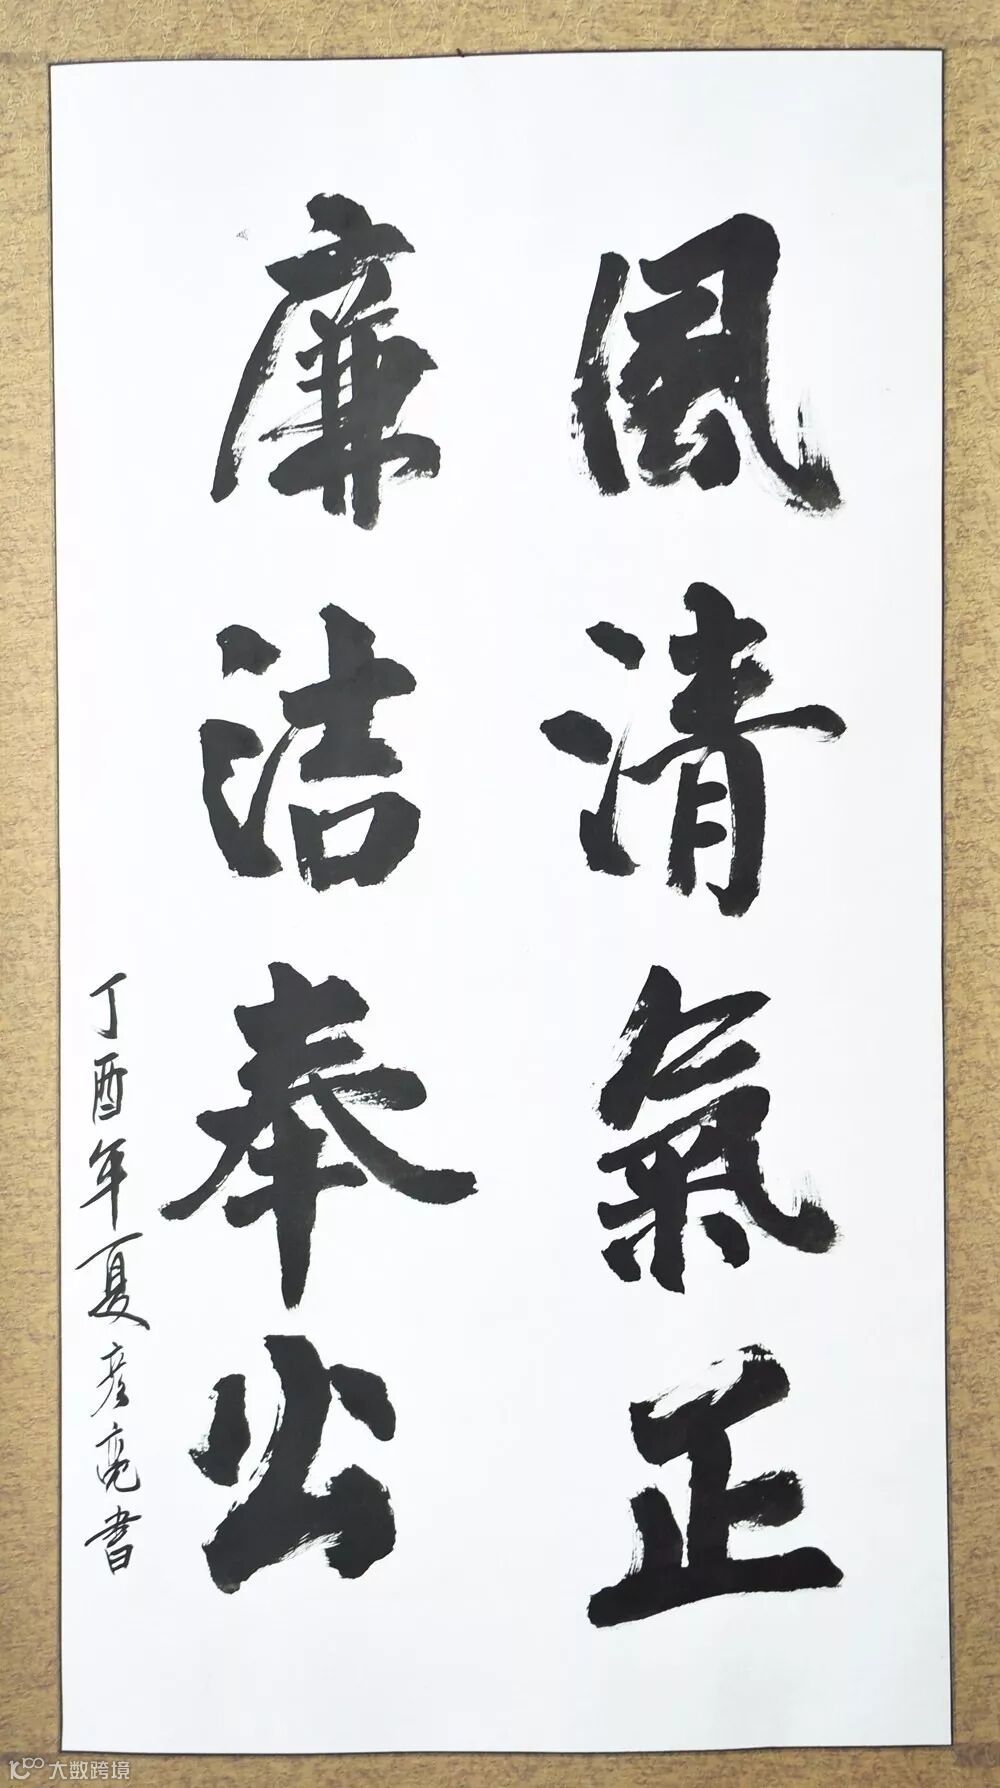 風清氣正
廉洁奉公
丁酉年夏彦亮書
大数跨境